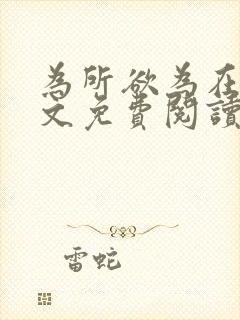 為所欲為在
文免費閱讀
雷蛇